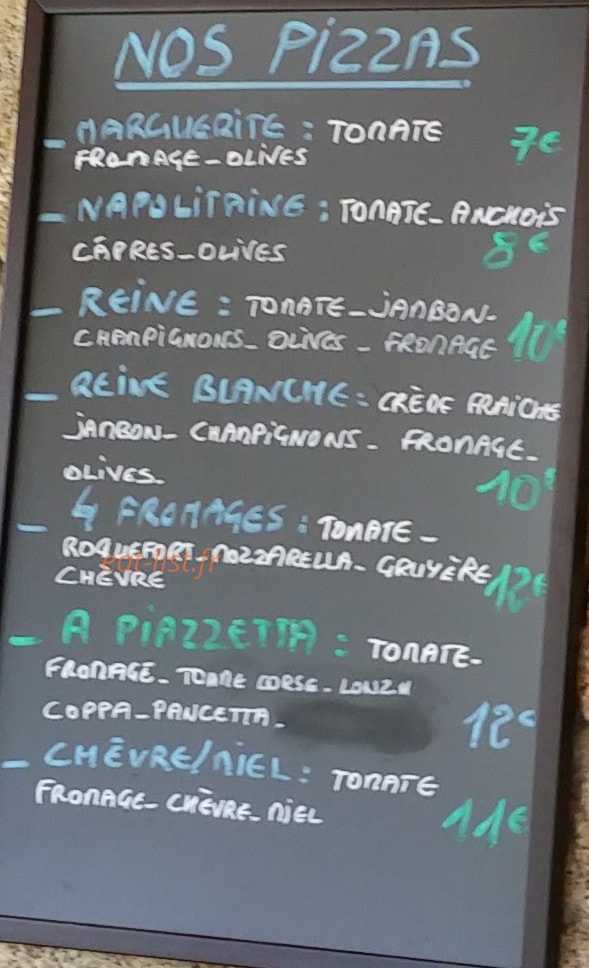 NOS PIZZAS
- MARGUERITE : TOMATE 7€
FROMAGE - OLIVES
- NAPOLITAINE : TOMATE - ANCHOIS
CÂPRES - OLIVES 8€
- REINE : TOMATE - JAMBON -
CHAMPIGNONS - OLIVES - FROMAGE 10€
- REINE BLANCHE : CRÈME FRAICHE
JAMBON - CHAMPIGNONS - FROMAGE -
OLIVES - 10€
- 4 FROMAGES : TOMATE -
ROQUEFORT - MOZZARELLA - GRUYÈRE
eat-list.fr
CHÈVRE 12€
- A PIAZZETTA : TOMATE -
FROMAGE - TOMME CORSE - LONZU
COPPA - PANCETTA - 12€
- CHÈVRE/MIEL : TOMATE
FROMAGE - CHÈVRE - MIEL 11€